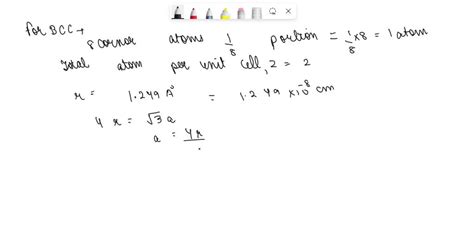 for BCC →
8 corner atoms 1/8 portion = 1/8 × 8 = 1 atom
Total atom per unit cell, Z = 2
r = 1.249 A° = 1.249 × 10⁻⁸ cm
4 r = √3 a
a = 4r